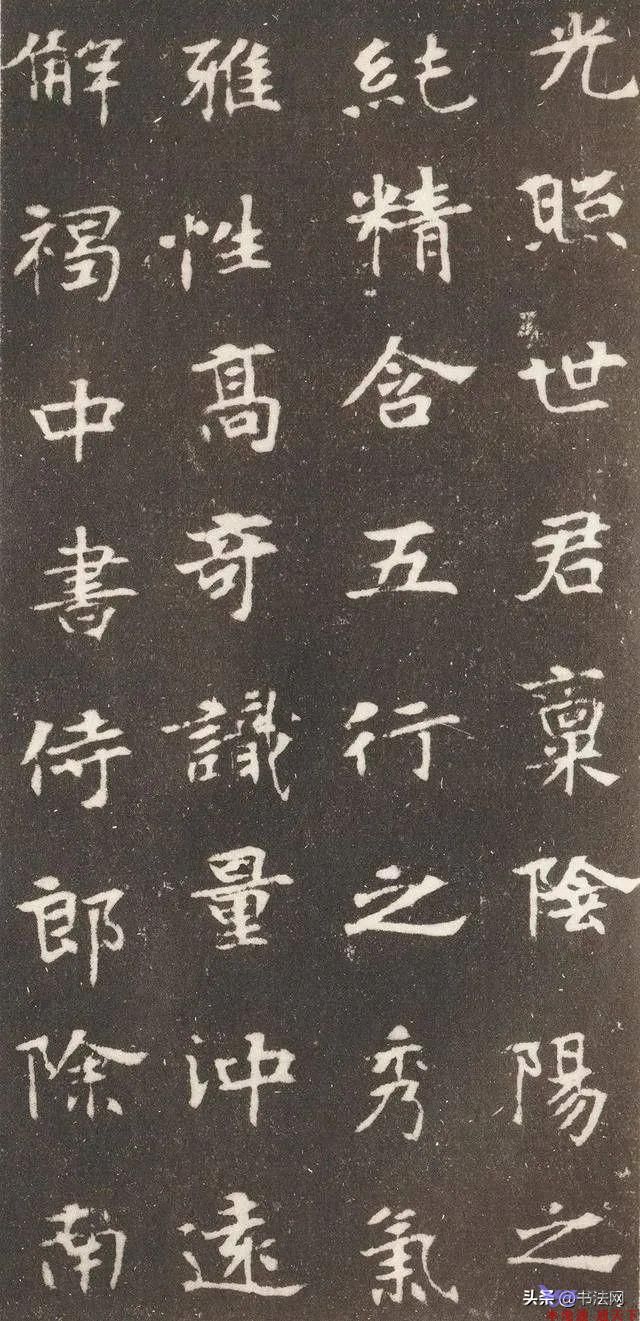 光照世君稟陰陽之
純精含五行之秀氣
雅性高奇識量沖遠
解褐中書侍郎除南
头条@书法网